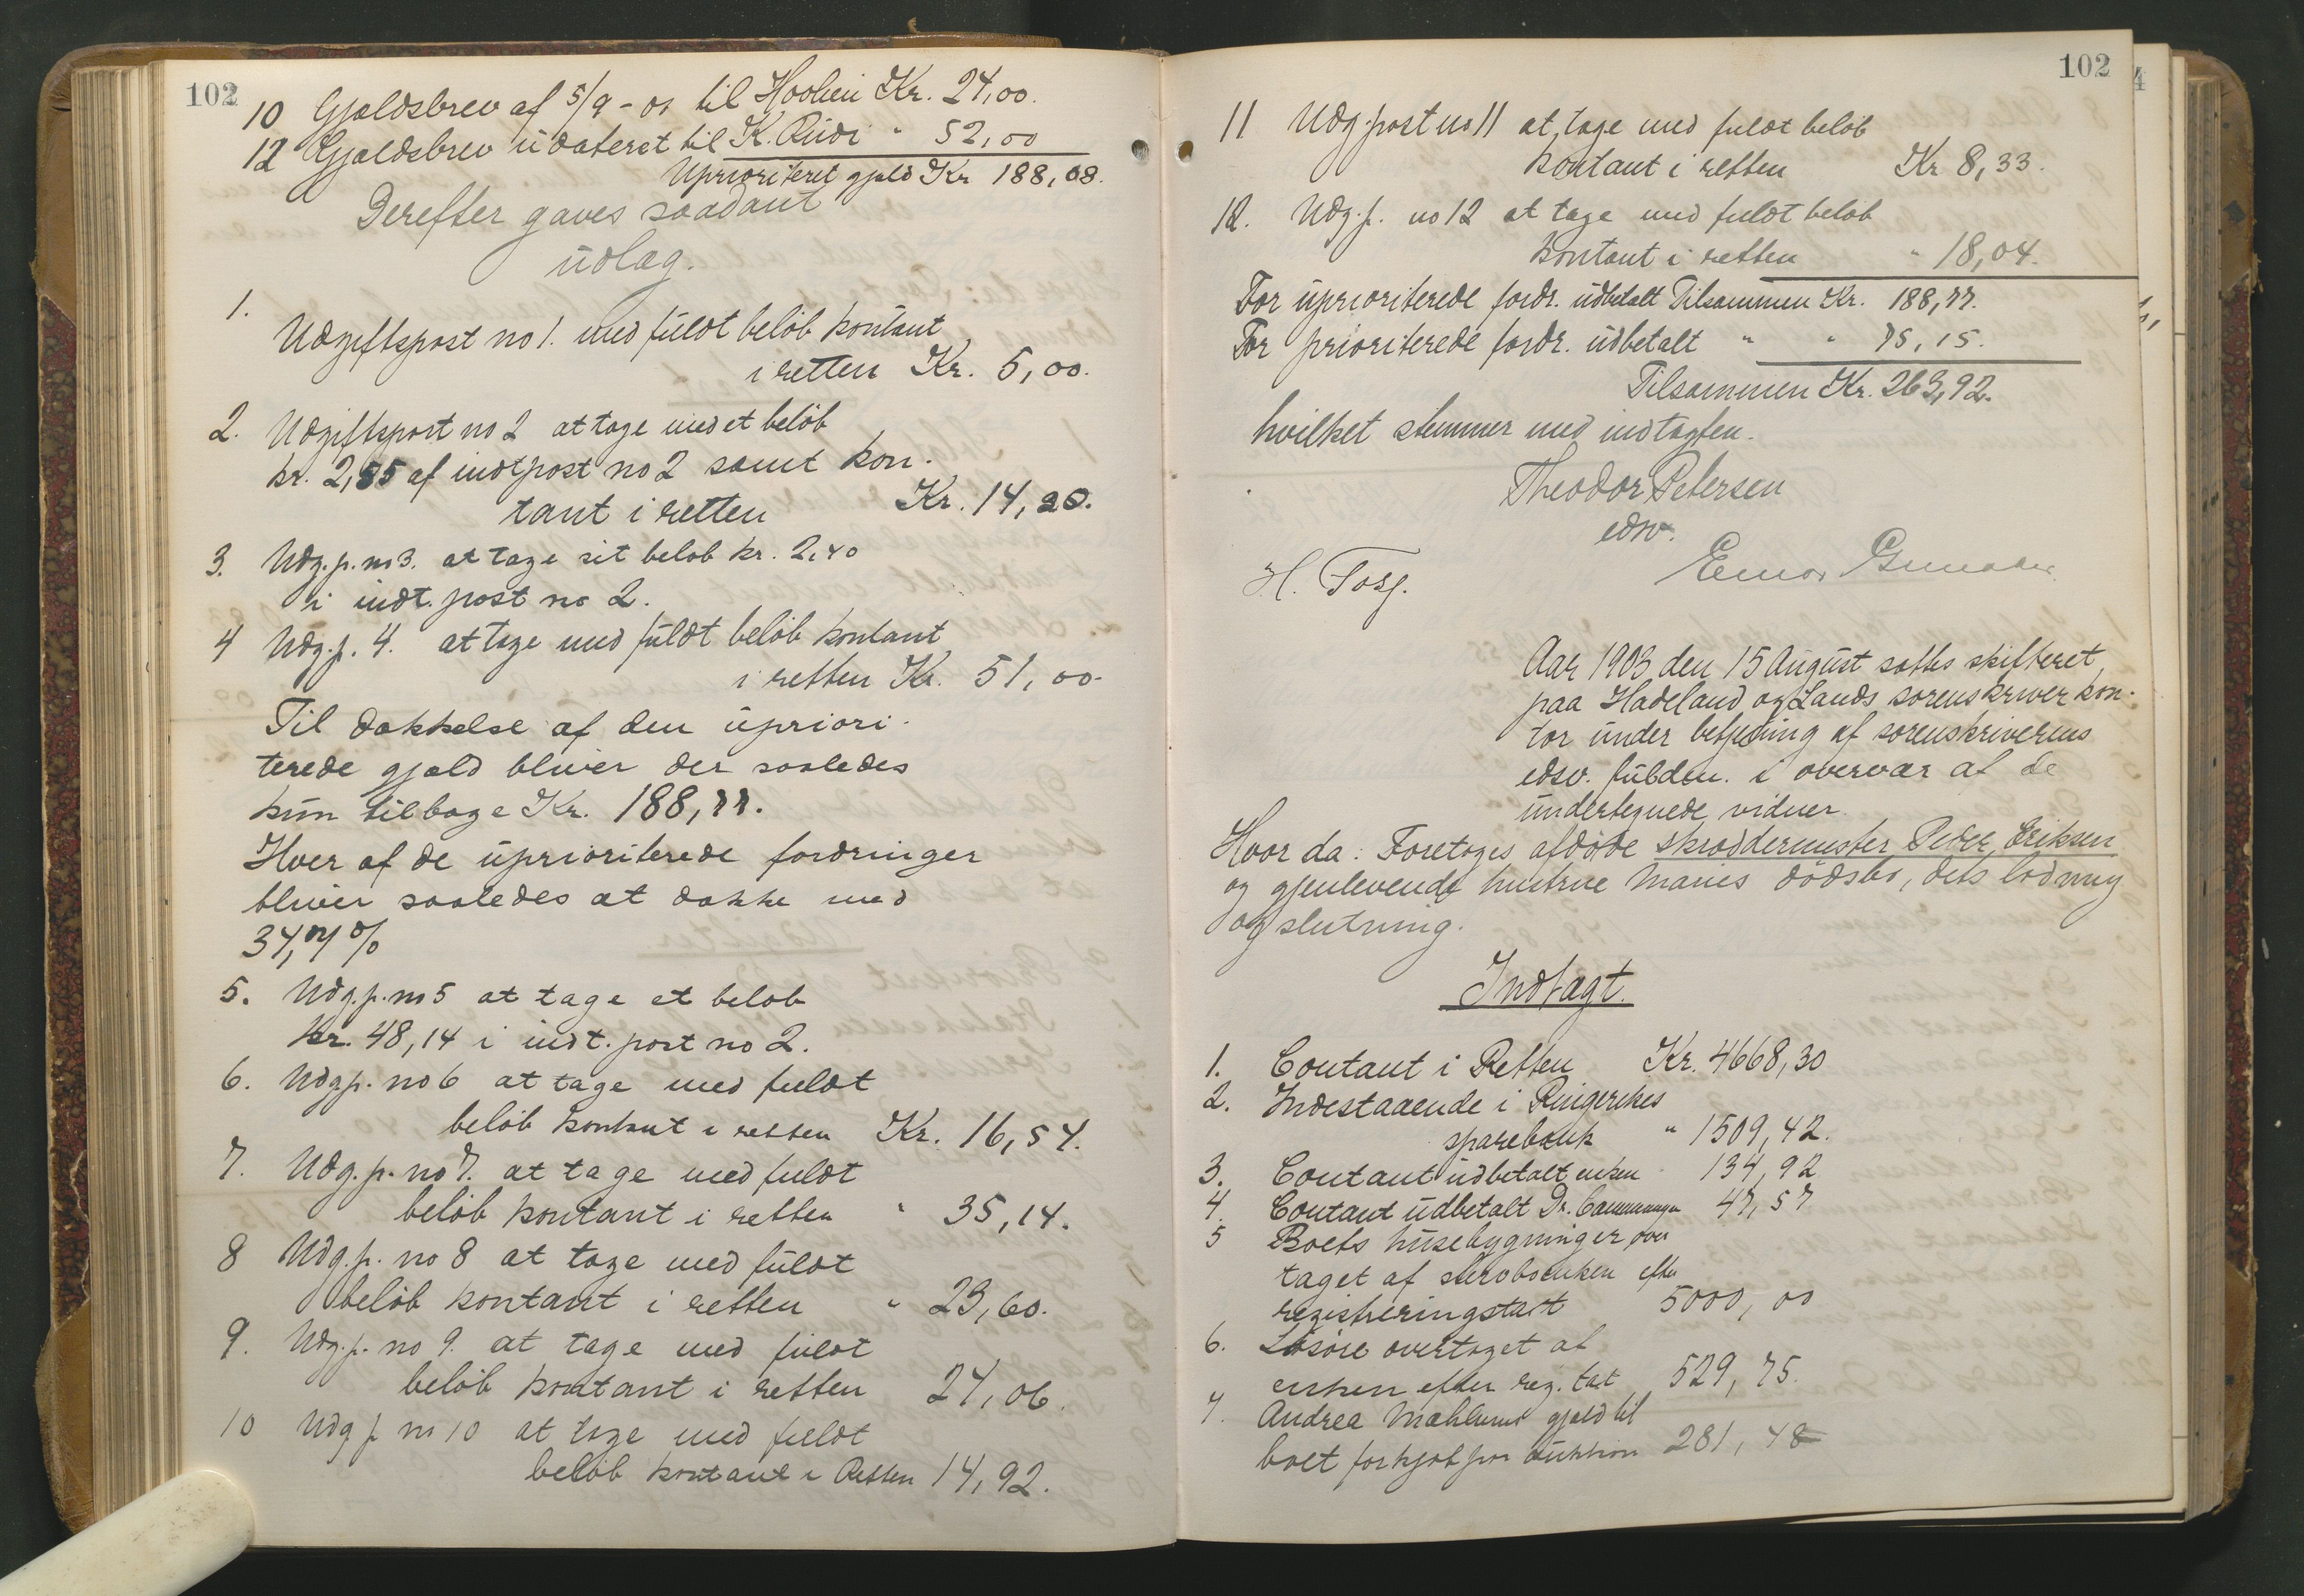 102
10 Gjældsbrev af 5/9 - 01 til Kr. 24,00.
12 Gjældsbrev udateret til K. Rudi " 52,00
Uprioriteret gjæld Kr 188,08.
Derefter gaves saadant
udlæg.
1. Udgiftspost no 1. med fuldt beløb kontant
i retten Kr. 5,00.
2. Udgiftspost no 2 at tage med et beløb
kr. 2,55 af indtpost no 2 samt kon-
tant i retten Kr. 14,20.
3. Udg.p. no 3. at tage sit beløb kr. 2,40
i indt. post no 2.
4 Udg.p. 4. at tage med fuldt beløb kontant
i retten Kr. 51,00.
Til dækkelse af den upriori-
terede gjæld bliver der saaledes
kun tilbage Kr. 188,77.
Hver af de uprioriterede fordringer
bliver saaledes at dække med
34,71 %
5. Udg.p. no 5 at tage et beløb
kr. 48,14 i indt. post no 2.
6. Udgp. no 6 at tage med fuldt
beløb kontant i retten Kr. 16,54.
7. Udg.p. no 7. at tage med fuldt
beløb kontant i retten " 35,14.
8 Udg.p. no 8 at tage med fuldt
beløb kontant i retten " 23,60.
9. Udg.p. no 9. at tage med fuldt
beløb kontant i retten 24,06.
10 Udg p no 10 at tage med fuldt
beløb kontant i Retten 14,92.
102
11 Udg.post no 11 at tage med fuldt beløb
kontant i retten Kr 8,33.
12. Udg.p. no 12 at tage med fuldt beløb
kontant i retten " 18,04.
For uprioriterede fordr. udbetalt Tilsammen Kr. 188,77.
For prioriterede fordr. udbetalt " " 75,15.
Tilsammen Kr. 263,92.
hvilket stemmer med indtægten.
Theodor Petersen
edsv.
H. Foss.
Aar 1903 den 15 August sattes skifteret
paa Hadeland og Lands sorenskriverkon-
tor under betjening af sorenskriverens
edsv. fuldm. i overvær af de
undertegnede vidner
Hvor da: Foretoges afdøde skræddermester Peder Eriksen
og gjenlevende hustrue Maries dødsbo, dets lodning
og slutning.
Indtægt.
1. Contant i Retten Kr. 4668,30
2. Indestaaende i Ringerikes
sparebank " 1509,42.
3. Contant udbetalt enken 134,92
4. Contant udbetalt Dr. 47,57
5 Boets husebygninger over
taget af stervboenken efter
registreringstaxt 5000,00
6. Løsøre overtaget af
enken efter reg. taxt 529,75.
7. Andrea Mæhlums gjæld til
boet for kjøb paa auktion 281,48